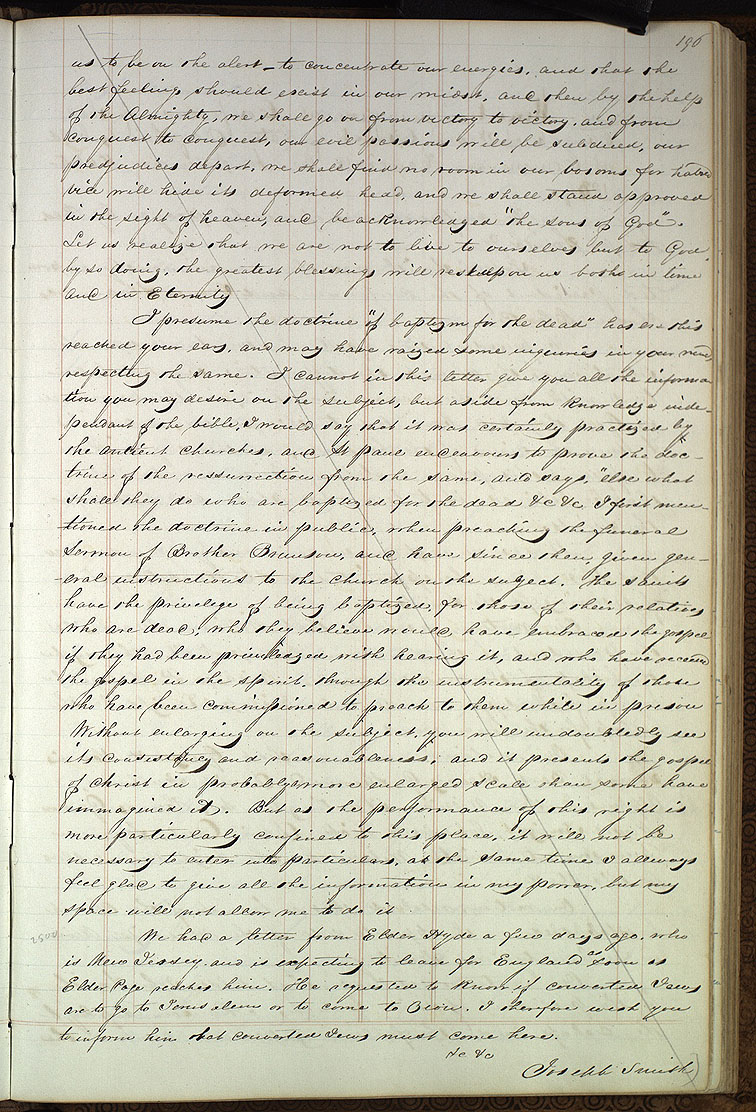 196
us to be on the alert – to concentrate our energies, and that the
best feelings should exist in our midst, and then by the help
of the Almighty, we shall go on from victory to victory, and from
conquest to conquest, our evil passions will be subdued, our
predjudices depart, we shall find no room in our bosoms for hatred
vice will hide its deformed head, and we shall stand approved
in the sight of heaven, and be acknowledged "the sons of God".
Let us realize that we are not to live to ourselves but to God
by so doing the greatest blessings will rest upon us both in time
and in Eternity
I presume the doctrine "of baptizm for the dead" has ere this
reached your ears, and may have raized some inquiries in your mind
respecting the same. I cannot in this letter give you all the informa-
tion you may desire on the subject, but aside from knowledge inde-
pendant of the bible, I would say that it was certainly practized by
the antient churches, and St Paul endeavours to prove the doc-
trine of the ressurrection from the same, and says, "else what
shall they do who are baptized for the dead &c &c" I first men-
-tioned the doctrine in public, when preaching the funeral
Sermon of Brother Brunson, and have since then, given gen-
-eral instructions to the Church on the subject. The saints
have the privelege of being baptized, for those of their relatives
who are dead, who they believe would have embraced the gospel
if they had been priveledged with hearing it, and who have received
the gospel in the spirit, through the instrumentality of those
who have been commissioned to preach to them while in prison
Without enlarging on the subject, you will undoubtedly see
its consistancy and reasonableness; and it presents the gospel
of Christ in probably more enlarged scale than some have
immagined it. But as the performance of this right is
more particularly confined to this place, it will not be
necessary to enter into particulars, at the same time I allways
feel glad to give all the information in my power, but my
space will not allow me to do it
We had a letter from Elder Hyde a few days ago, who
is New Jersey and is expecting to leave for England Soon as
Elder Page reaches him. He requested to know if converted Jews
are to go to Jerusalem or to come to Zion. I therefore wish you
to inform him that converted Jews must come here.
&c &c
Joseph Smith